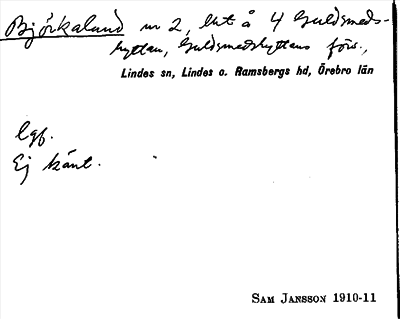 Björkaland nr 2, lht å 4 Guldsmeds-
hyttan, Guldsmedshyttans förs.,
Lindes sn, Lindes o. Ramsbergs hd, Örebro län
lgf.
Ej känt.
SAM JANSSON 1910-11